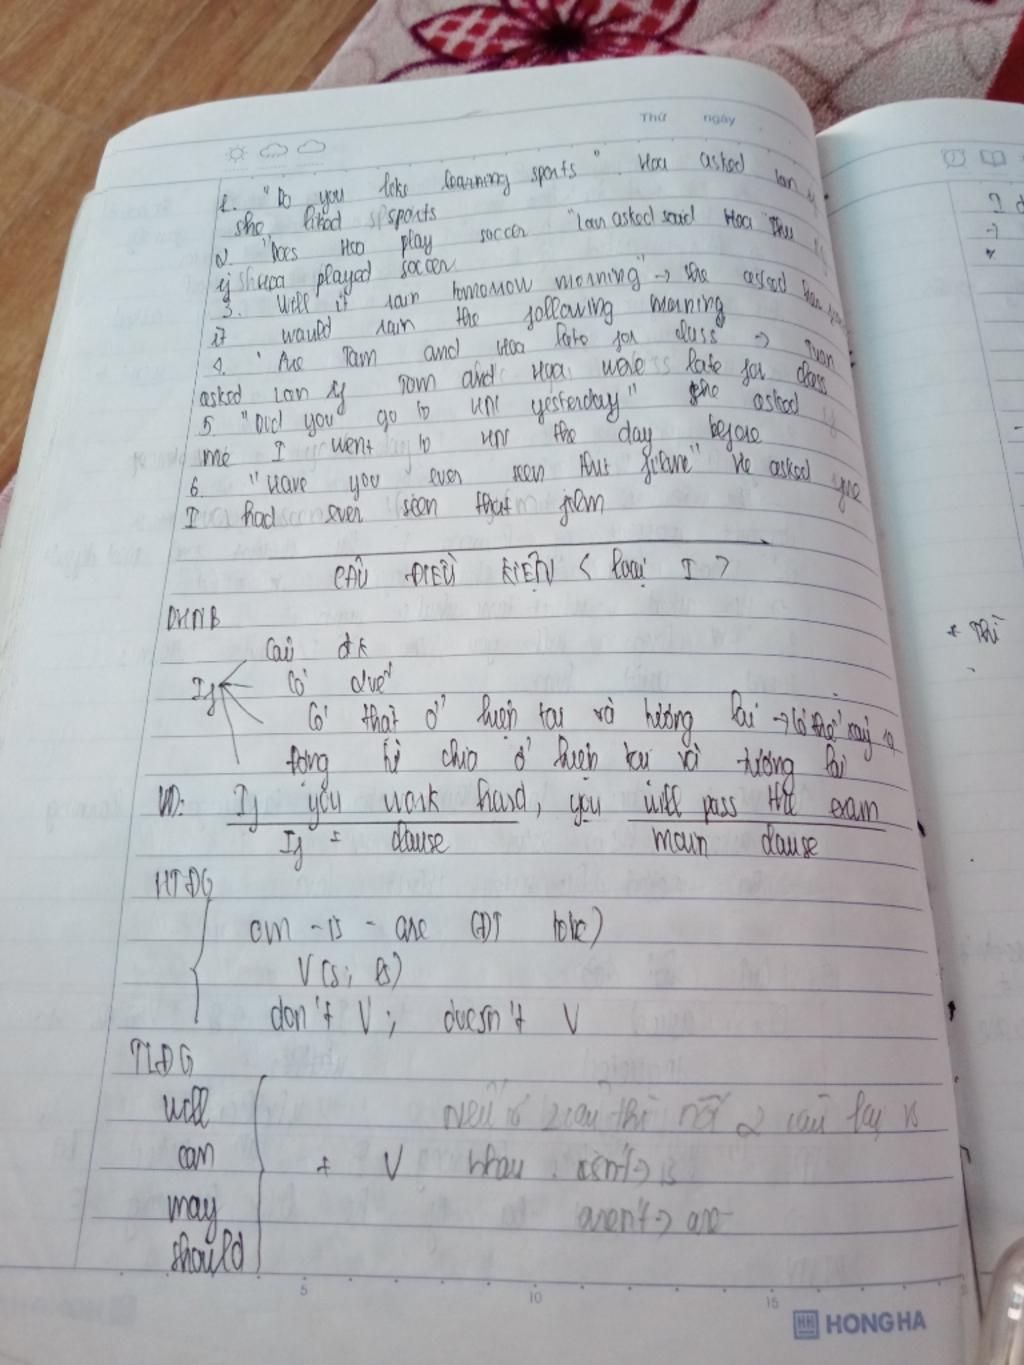 Thứ ngày
1. "Do you like learning sports". Hoa asked Lan if
she liked sports
2 "Does Hoa play soccer "Lan asked said Hoa Thu
if Hoa played soccer
3. Will it rain tomorrow morning" → She asked
it would rain the following morning
4. "Are Tam and Hoa late for class → Tuan
asked Lan if Tam and Hoa were late for class
5 "Did you go to yesterday" She asked if
me I went to the day before
6 "Have you ever seen that" He asked me
I had ever seen that film
CÂU ĐIỀU KIỆN < loại I >
DHNB
Câu đk
If Có
Có thật ở hiện tại và tương lai → có thể xảy ra
ở hiện tại và tương lai
VD: If you work hard, you will pass the exam
If = clause main clause
HTĐG
am - is - are (ĐT tobe)
V(s; es)
don't V; doesn't V
TLĐG
will Nếu 2 câu thì nối 2 câu lại
can + V nhau. isn't → is
may aren't → are
should
5 10 15
HH HONG HA
I
+ Thì